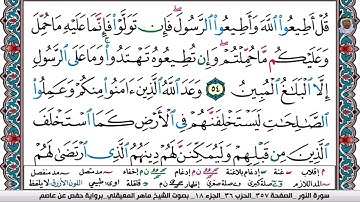 قُلْ أَطِيعُوا۟ ٱللَّهَ وَأَطِيعُوا۟ ٱلرَّسُولَ ۖ فَإِن تَوَلَّوْا۟ فَإِنَّمَا عَلَيْهِ مَا حُمِّلَ
وَعَلَيْكُم مَّا حُمِّلْتُمْ ۖ وَإِن تُطِيعُوهُ تَهْتَدُوا۟ ۚ وَمَا عَلَى ٱلرَّسُولِ
إِلَّا ٱلْبَلَـٰغُ ٱلْمُبِينُ ٥٤ وَعَدَ ٱللَّهُ ٱلَّذِينَ ءَامَنُوا۟ مِنكُمْ وَعَمِلُوا۟
ٱلصَّـٰلِحَـٰتِ لَيَسْتَخْلِفَنَّهُمْ فِى ٱلْأَرْضِ كَمَا ٱسْتَخْلَفَ
ٱلَّذِينَ مِن قَبْلِهِمْ وَلَيُمَكِّنَنَّ لَهُمْ دِينَهُمُ ٱلَّذِى ٱرْتَضَىٰ لَهُمْ
سورة النور _ الصفحة ٣٥٧ _ الحزب ٣٦ _ الجزء ١٨ _ بصوت الشيخ ماهر المعيقلي _ برواية حفص عن عاصم